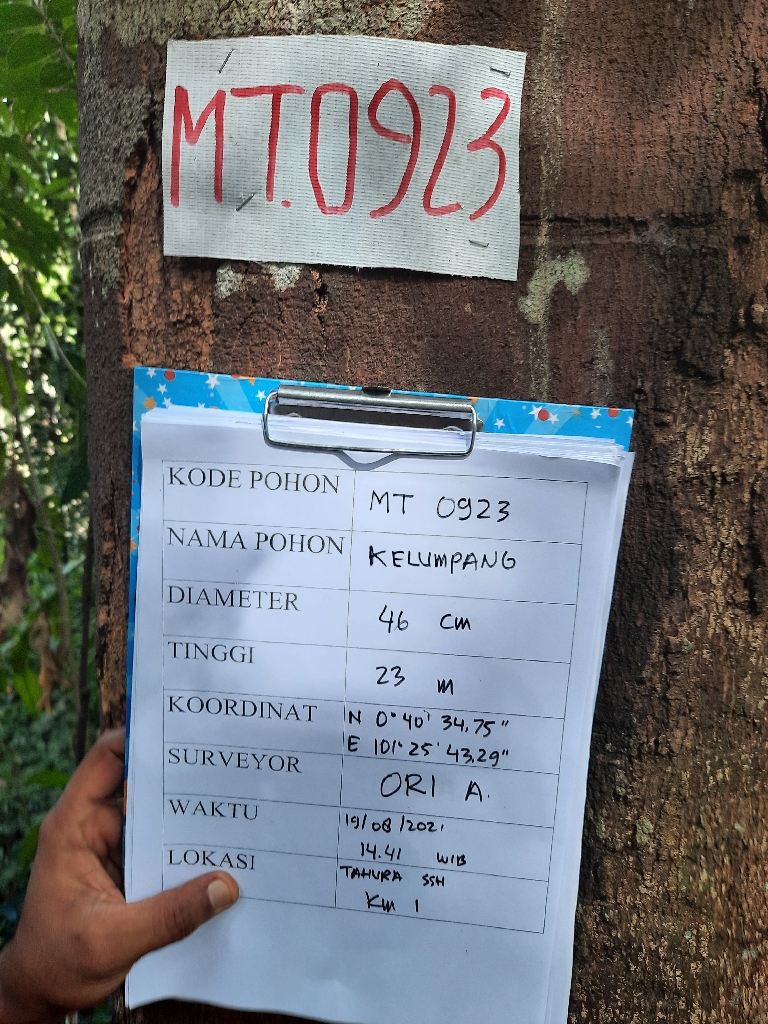 MT.0923
KODE POHON MT 0923
NAMA POHON KELUMPANG
DIAMETER 46 cm
TINGGI 23 m
KOORDINAT N 0° 40' 34,75"
E 101° 25' 43,29"
SURVEYOR ORI A.
WAKTU 19/08/2021
14.41 WIB
LOKASI TAHURA SSH
Km 1